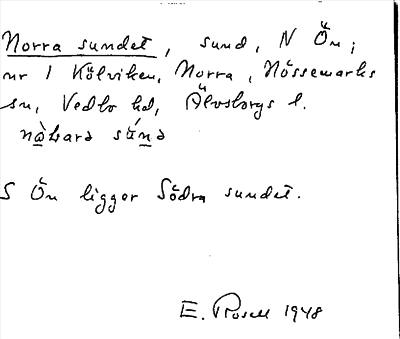 Norra sundet, sund, N Ön;
nr 1 Kölviken, Norra, Nössemarks
sn, Vedbo hd, Älvsborgs l.
S Ön ligger Södra sundet.
E. Rosell 1948